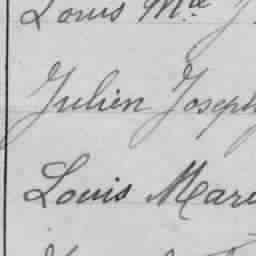 Louis Mie J
Julien Joseph
Louis Mari